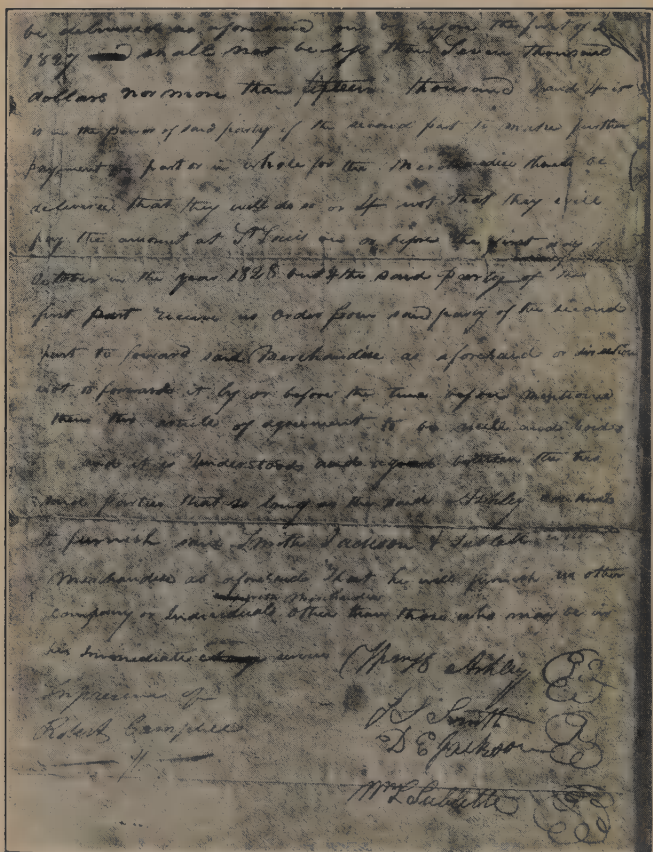 be delivered as aforesaid on or before the first of
1827 shall not be less than Seven thousand
dollars nor more than fifteen thousand and if it
is in the power of said party of the second part to make further
payment in part or in whole for the Merchandise thus be
delivered that they will do so or if not that they will
pay the amount at St Louis on or before the first day of
October in the year 1828 but if the said party of the
first part receive no order from said party of the second
part to forward said Merchandise as aforesaid or direction
not to forward it by or before the time before mentioned
then this article of agreement to be null and void
and it is understood and agreed between the two
said parties that so long as the said Ashley continues
to furnish said Smith Jackson & Sublette with
Merchandise as aforesaid that he will furnish no other
with merchandise
company or Individuals other than those who may be in
his immediate service
Wm H Ashley
In presence of
J S Smith
Robert Campbell
D E Jackson
Wm L Sublette